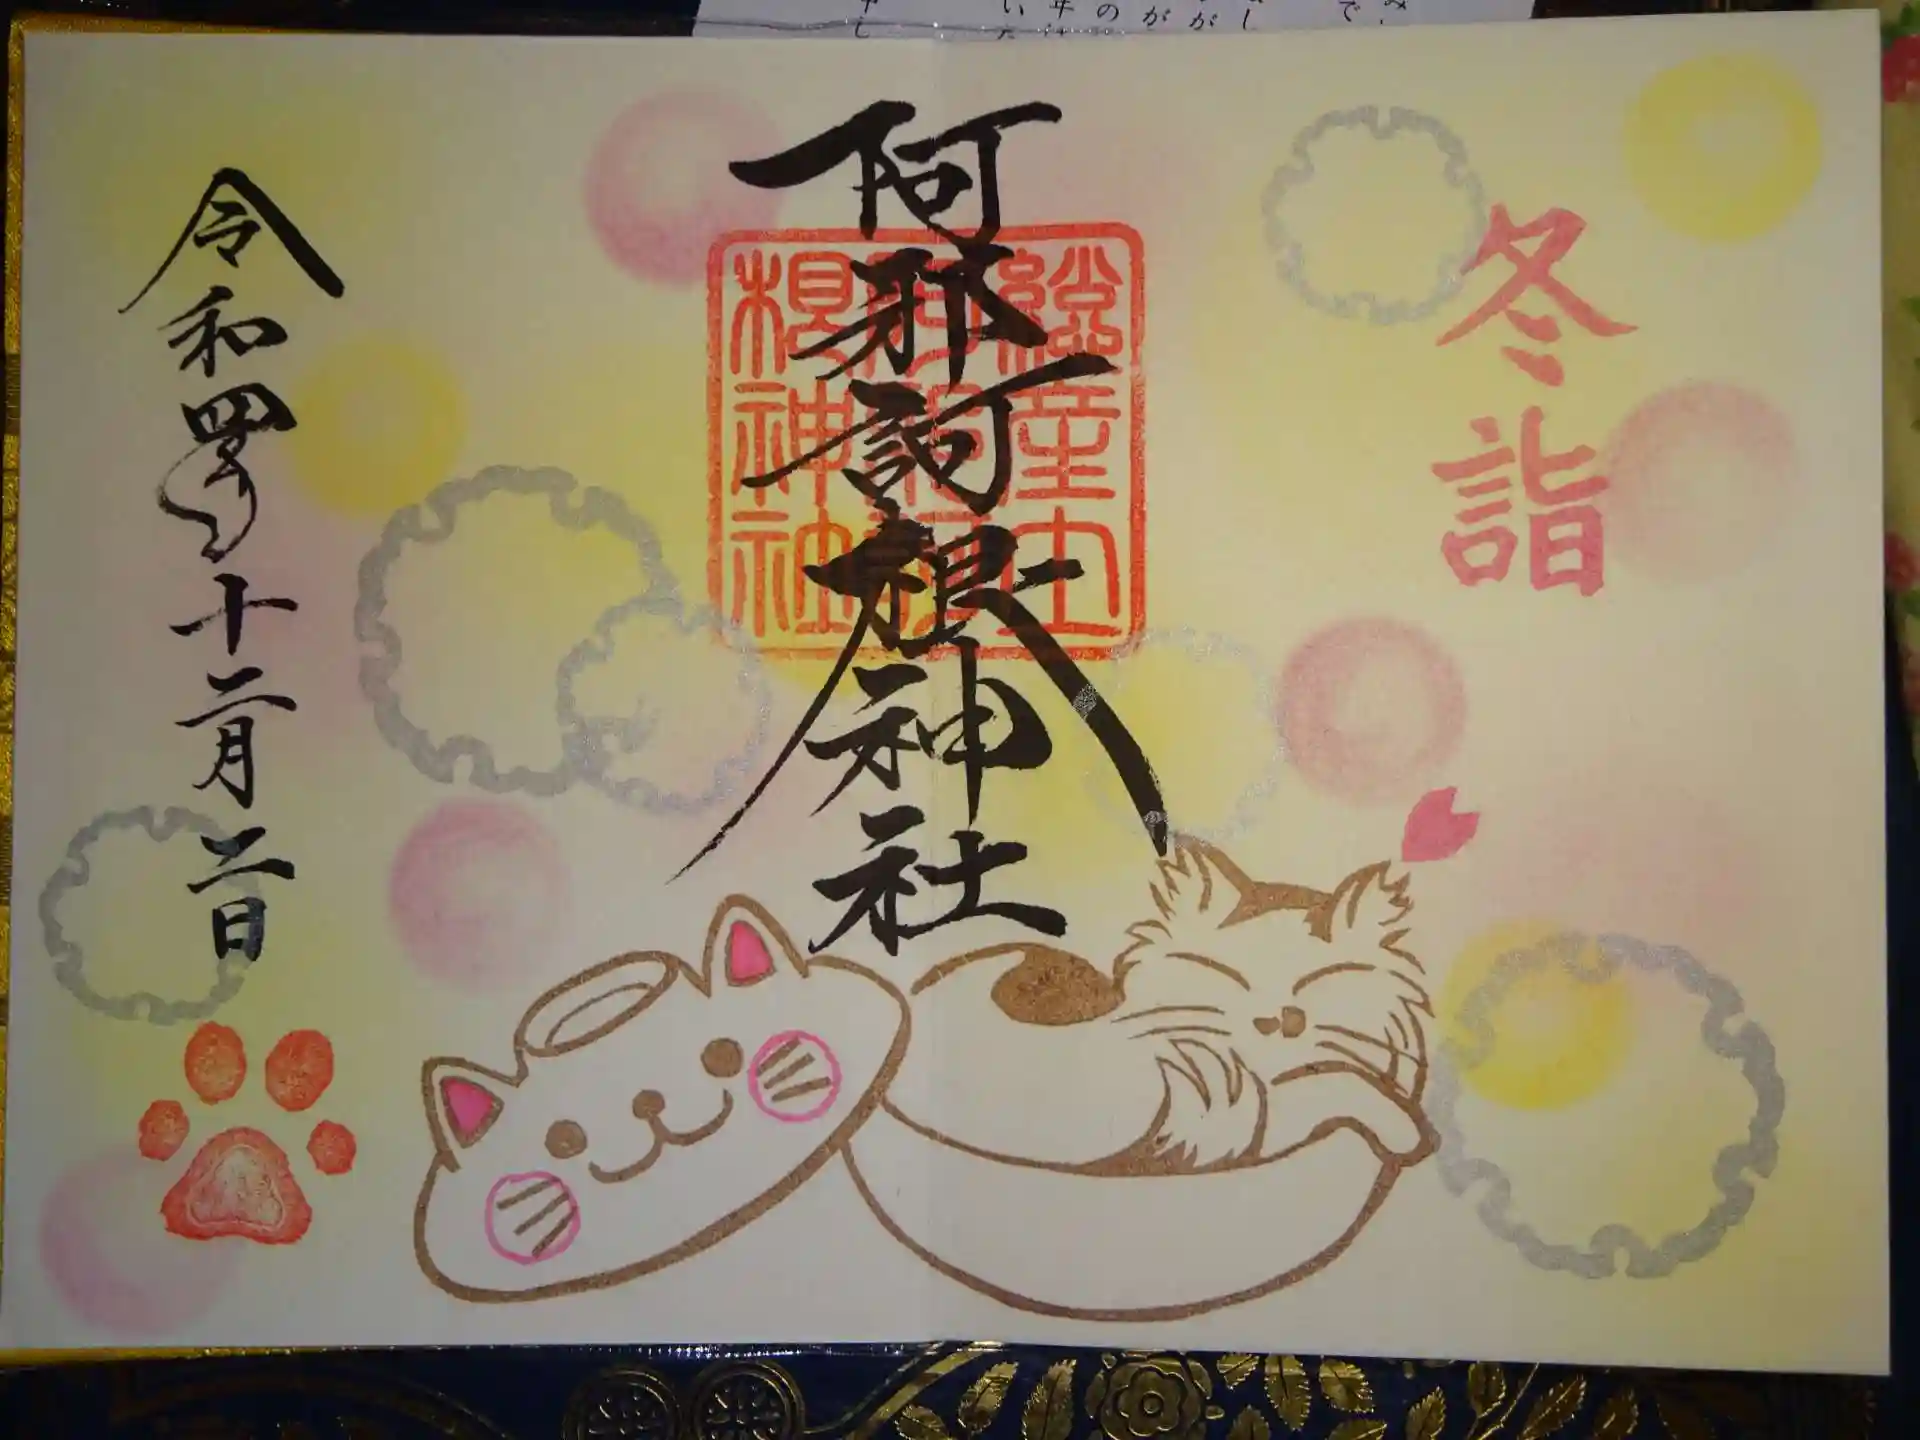 冬詣
阿邪訶根神社
総産土
阿邪訶根神社
令和四年十二月二日